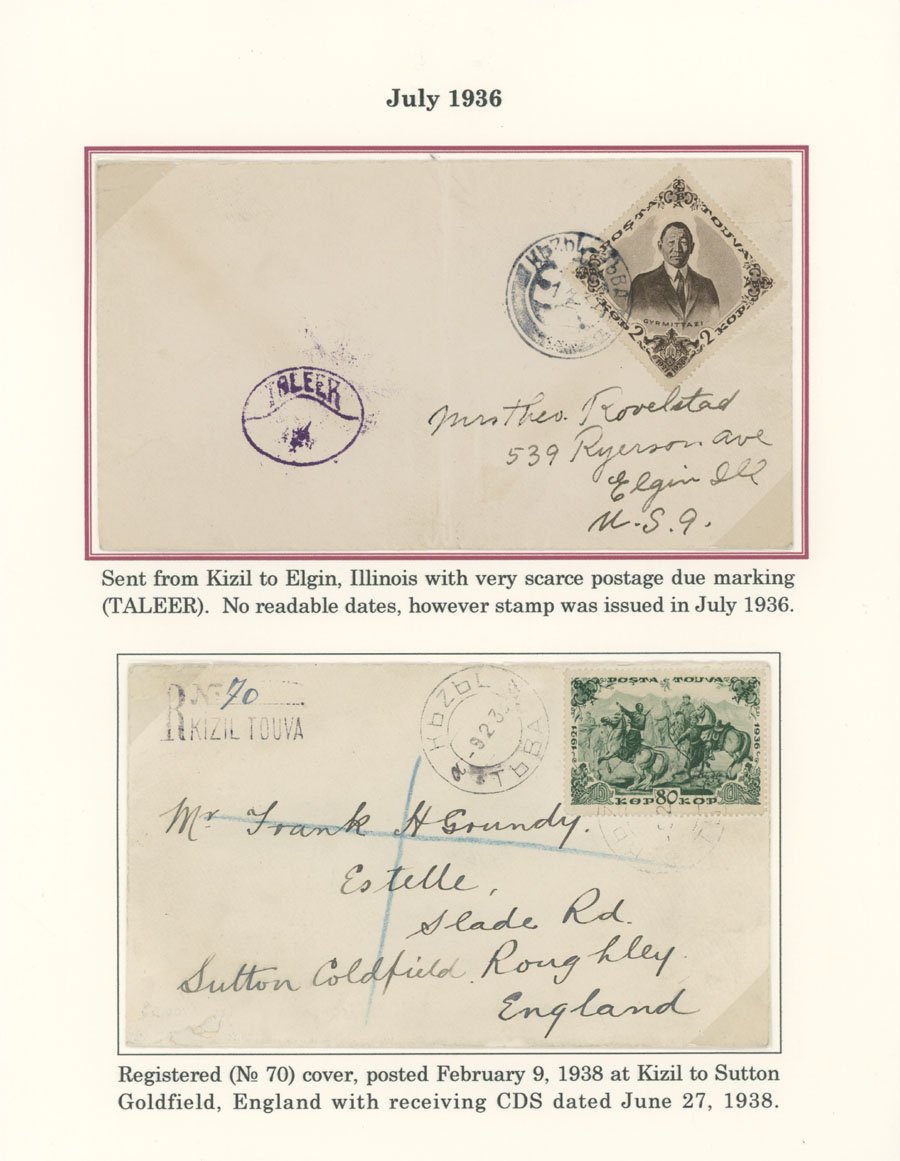 July 1936
POSTA TOUVA
КЬZЬL ТЬВА
GYRMITTAZI
KƏP 2 2 KOP
TALEER
Mrs Theo. Rovelstad
539 Ryerson ave
Elgin Ill
U.S.A.
Sent from Kizil to Elgin, Illinois with very scarce postage due marking
(TALEER). No readable dates, however stamp was issued in July 1936.
R № 70
KIZIL TOUVA
КЬZЬL
-9.2.3
a ТЬВА
POSTA TOUVA
1921 1936
KƏP 80 KOP
Mr Frank H Grundy.
Estelle,
Slade Rd.
Sutton Coldfield. Roughley.
England
Registered (№ 70) cover, posted February 9, 1938 at Kizil to Sutton
Goldfield, England with receiving CDS dated June 27, 1938.